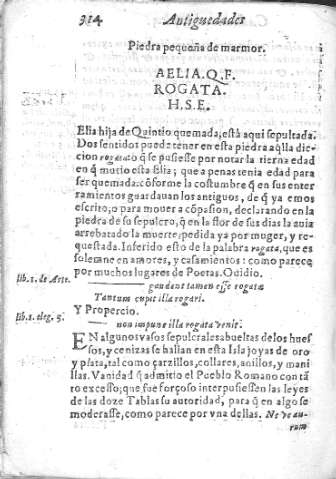 314 Antiguedades
Piedra pequeña de marmor.
AELIA.Q.F.
ROGATA.
H.S.E.
Elia hija de Quintio quemada, està aqui sepultada.
Dos sentidos puede tener en esta piedra aq̃lla dic-
cion rogata: o q̃ se pusiesse por notar la tierna edad
en q̃ murio esta Elia; que a penas tenia edad para
ser quemada: cõforme la costumbre q̃ en sus enter
ramientos guardauan los antiguos, de q̃ ya emos
escrito; o para mouer a cõpasion, declarando en la
piedra de su sepulcro, q̃ en la flor de sus dias la auia
arrebatado la muerte; pedida ya por muger, y re-
questada. Inferido esto de la palabra rogata, que es
solemne en amores, y casamientos: como parece
por muchos lugares de Poetas. Ouidio.
lib. 1. de Arte. gaudent tamen esse rogatæ
Tantum cupit illa rogari.
Y Propercio.
lib. 1. eleg. 5. non impune illa rogata venit.
EN algunos vasos sepulcrales abueltas de los hues
sos, y cenizas se hallan en esta Isla joyas de oro
y plata, tal como çarzillos, collares, anillos, y mani
llas. Vanidad q̃ admitio el Pueblo Romano con tã
to excesso; que fue forçoso interpusiessen las leyes
de las doze Tablas su autoridad, para q̃ en algo se
moderasse, como parece por vna dellas. Ne ve au-
rum